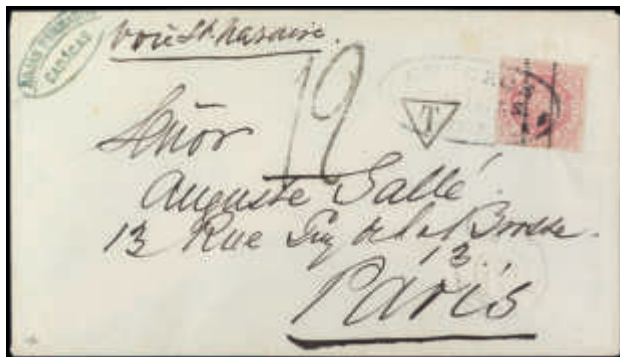 CARACAS
voie St. Nazaire.
12
T
Señor
Auguste Sallé.
13 Rue Guy de la Brosse.
13.
Paris